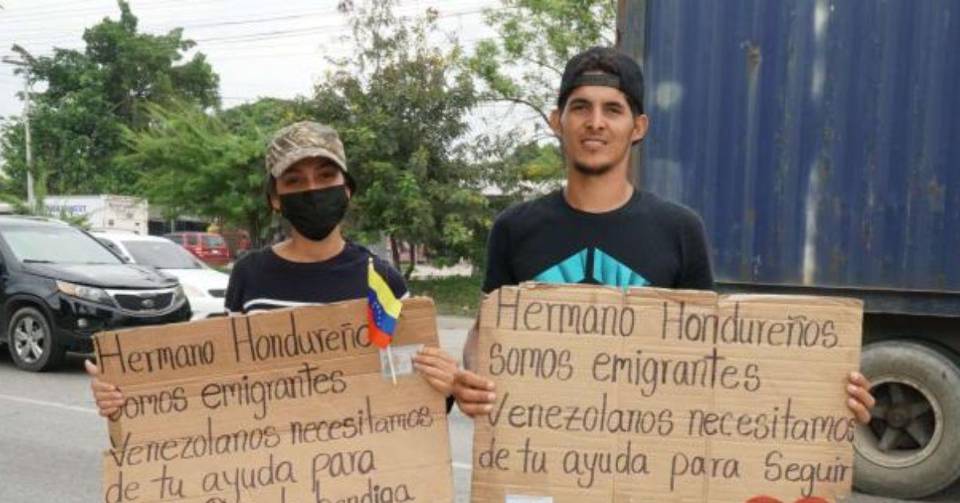 Hermano Hondureño
somos emigrantes
Venezolanos necesitamos
de tu ayuda para
bendiga
Hermano Hondureños
somos emigrantes
Venezolanos necesitamos
de tu ayuda para Seguir